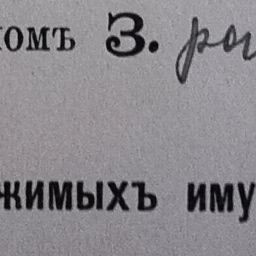 омъ 3. ра
жимыхъ иму